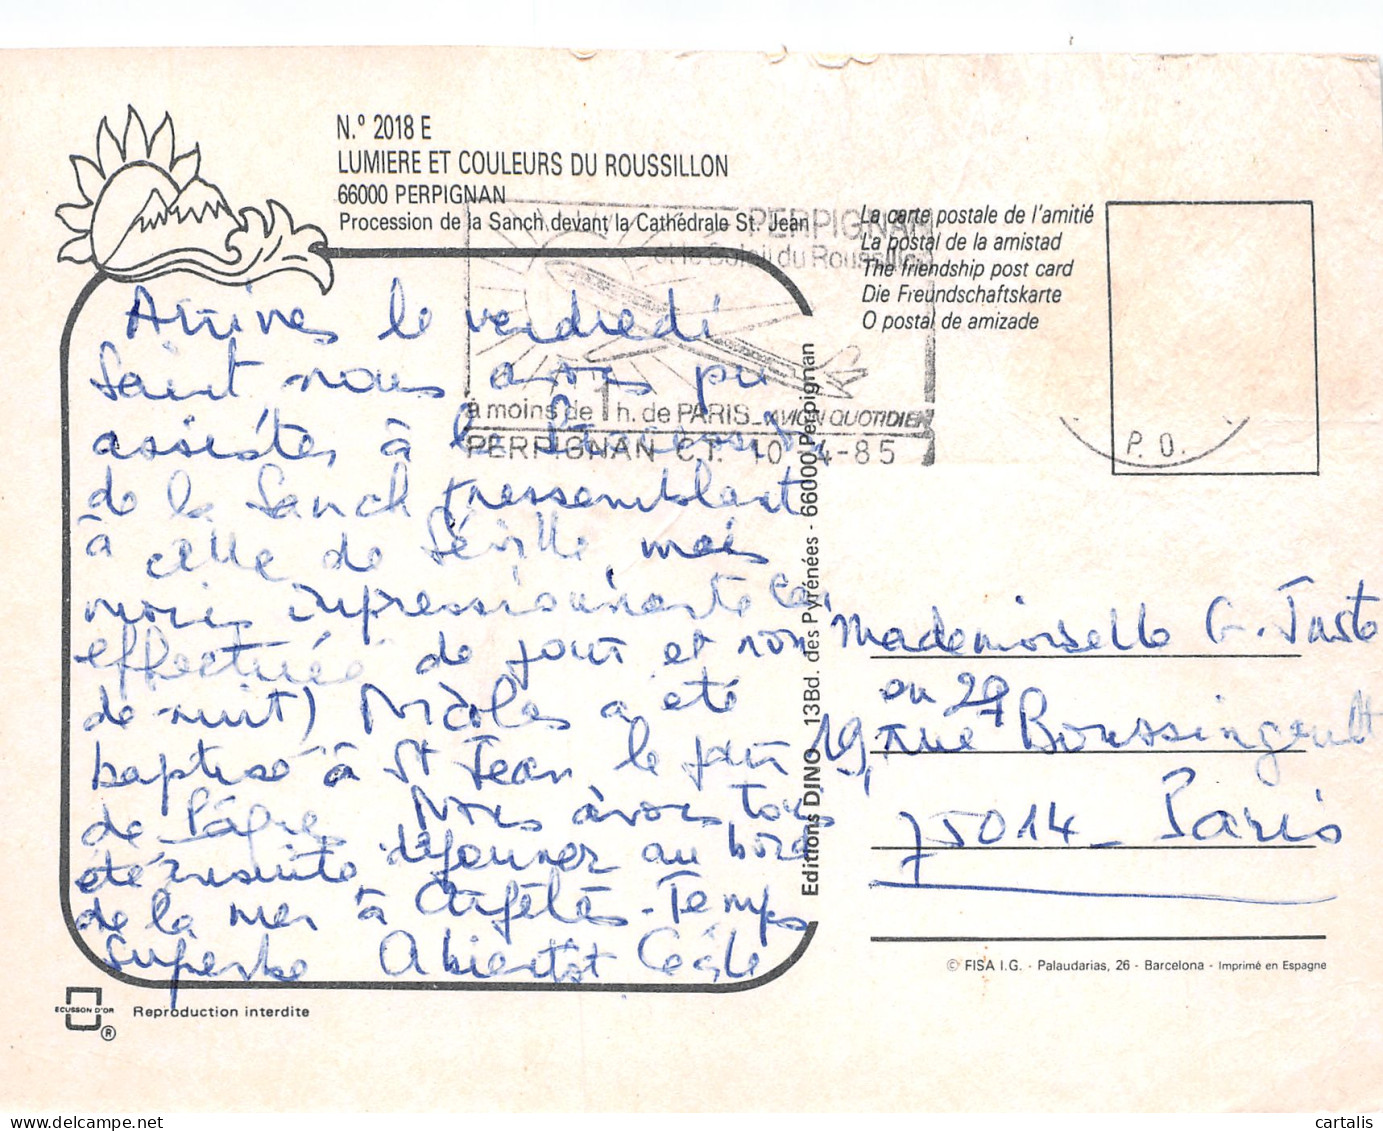 N.º 2018 E
LUMIERE ET COULEURS DU ROUSSILLON
66000 PERPIGNAN
Procession de la Sanch devant la Cathédrale St. Jean
PERPIGNAN
et le Soleil du Roussillon
à moins de 1 h. de PARIS_AVION QUOTIDIEN
PERPIGNAN C.T. 10-4-85
La carte postale de l'amitié
La postal de la amistad
The friendship post card
Die Freundschaftskarte
O postal de amizade
P.O.
Arrives le vendredi
Saint nous avons pu
assister à la Procession
de la Sanch (ressemblant
à celle de Séville, mais
moins impressionnante car
effectuée de jour et non
de nuit) Nicolas a été
baptisé à St Jean le jour
de Pâques Nous avons tous
été ensuite déjeuner au bord
de la mer à Argelès. Temps
superbe A bientôt Cécile
Editions DINO 13Bd. des Pyrénées - 66000 Perpignan
Mademoiselle G.
ou 27
19, rue Boussingault
75014_ Paris
© FISA I.G. - Palaudarias, 26 - Barcelona - Imprimé en Espagne
ECUSSON D'OR
®
Reproduction interdite
cartalis